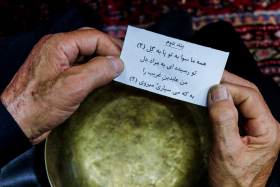 بند دوم
همه ما سوا به تو پا به گل (۲)
تو رسیده ای به مراد دل
من عابدین غریب را
به که می سپاری میروی (۲)